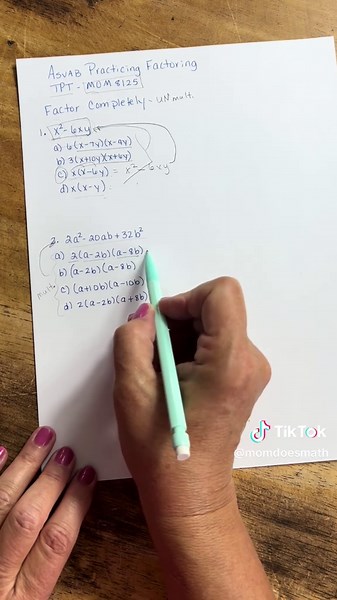 ASVAB Practicing Factoring
TPT - MOM 8125
Factor Completely - UNmult.
1. x² - 6xy
a) 6(x-7y)(x-9y)
b) 3(x+10y)(x+6y)
c) x(x-6y) = x² - 6xy
d) x(x-y)
2. 2a² - 20ab + 32b²
a) 2(a-2b)(a-8b)
b) (a-2b)(a-8b)
c) (a+10b)(a-10b)
d) 2(a-2b)(a+8b)
TikTok
@momdoesmath